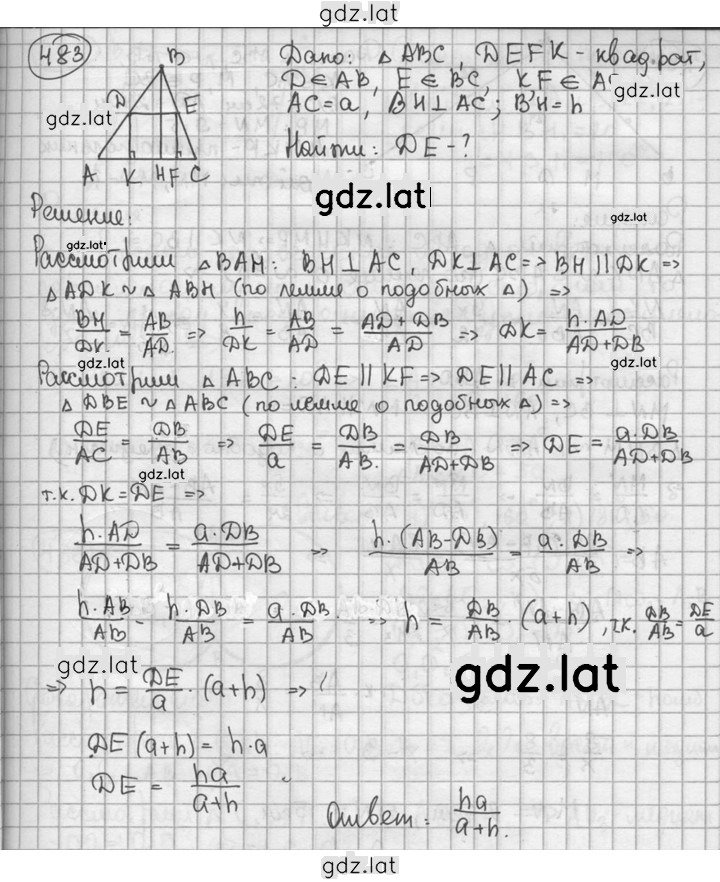 gdz.lat
483
B
D
E
A K H F C
gdz.lat
Дано: △ ABC, DEFK - квадрат,
D ∈ AB, E ∈ BC, KF ∈ AC
gdz.lat
AC = a, BH ⊥ AC; BH = h
Найти: DE - ?
gdz.lat
gdz.lat
Решение:
gdz.lat
Рассмотрим △ BAH: BH ⊥ AC, DK ⊥ AC => BH || DK =>
△ ADK ~ △ ABH (по лемме о подобных △) =>
BH/DK = AB/AD => h/DK = AB/AD = (AD + DB)/AD => DK = h·AD/(AD+DB)
gdz.lat
gdz.lat
Рассмотрим △ ABC: DE || KF => DE || AC =>
△ DBE ~ △ ABC (по лемме о подобных △) =>
DE/AC = DB/AB => DE/a = DB/AB = DB/(AD+DB) => DE = a·DB/(AD+DB)
gdz.lat
т.к. DK = DE =>
h·AD/(AD+DB) = a·DB/(AD+DB) => h·(AB-DB)/AB = a·DB/AB =>
h·AB/AB - h·DB/AB = a·DB/AB => h = DB/AB · (a+h), т.к. DB/AB = DE/a
gdz.lat
gdz.lat
=> h = DE/a · (a+h) => (
DE (a+h) = h·a
DE = ha/(a+h)
Ответ: ha/(a+h).
gdz.lat